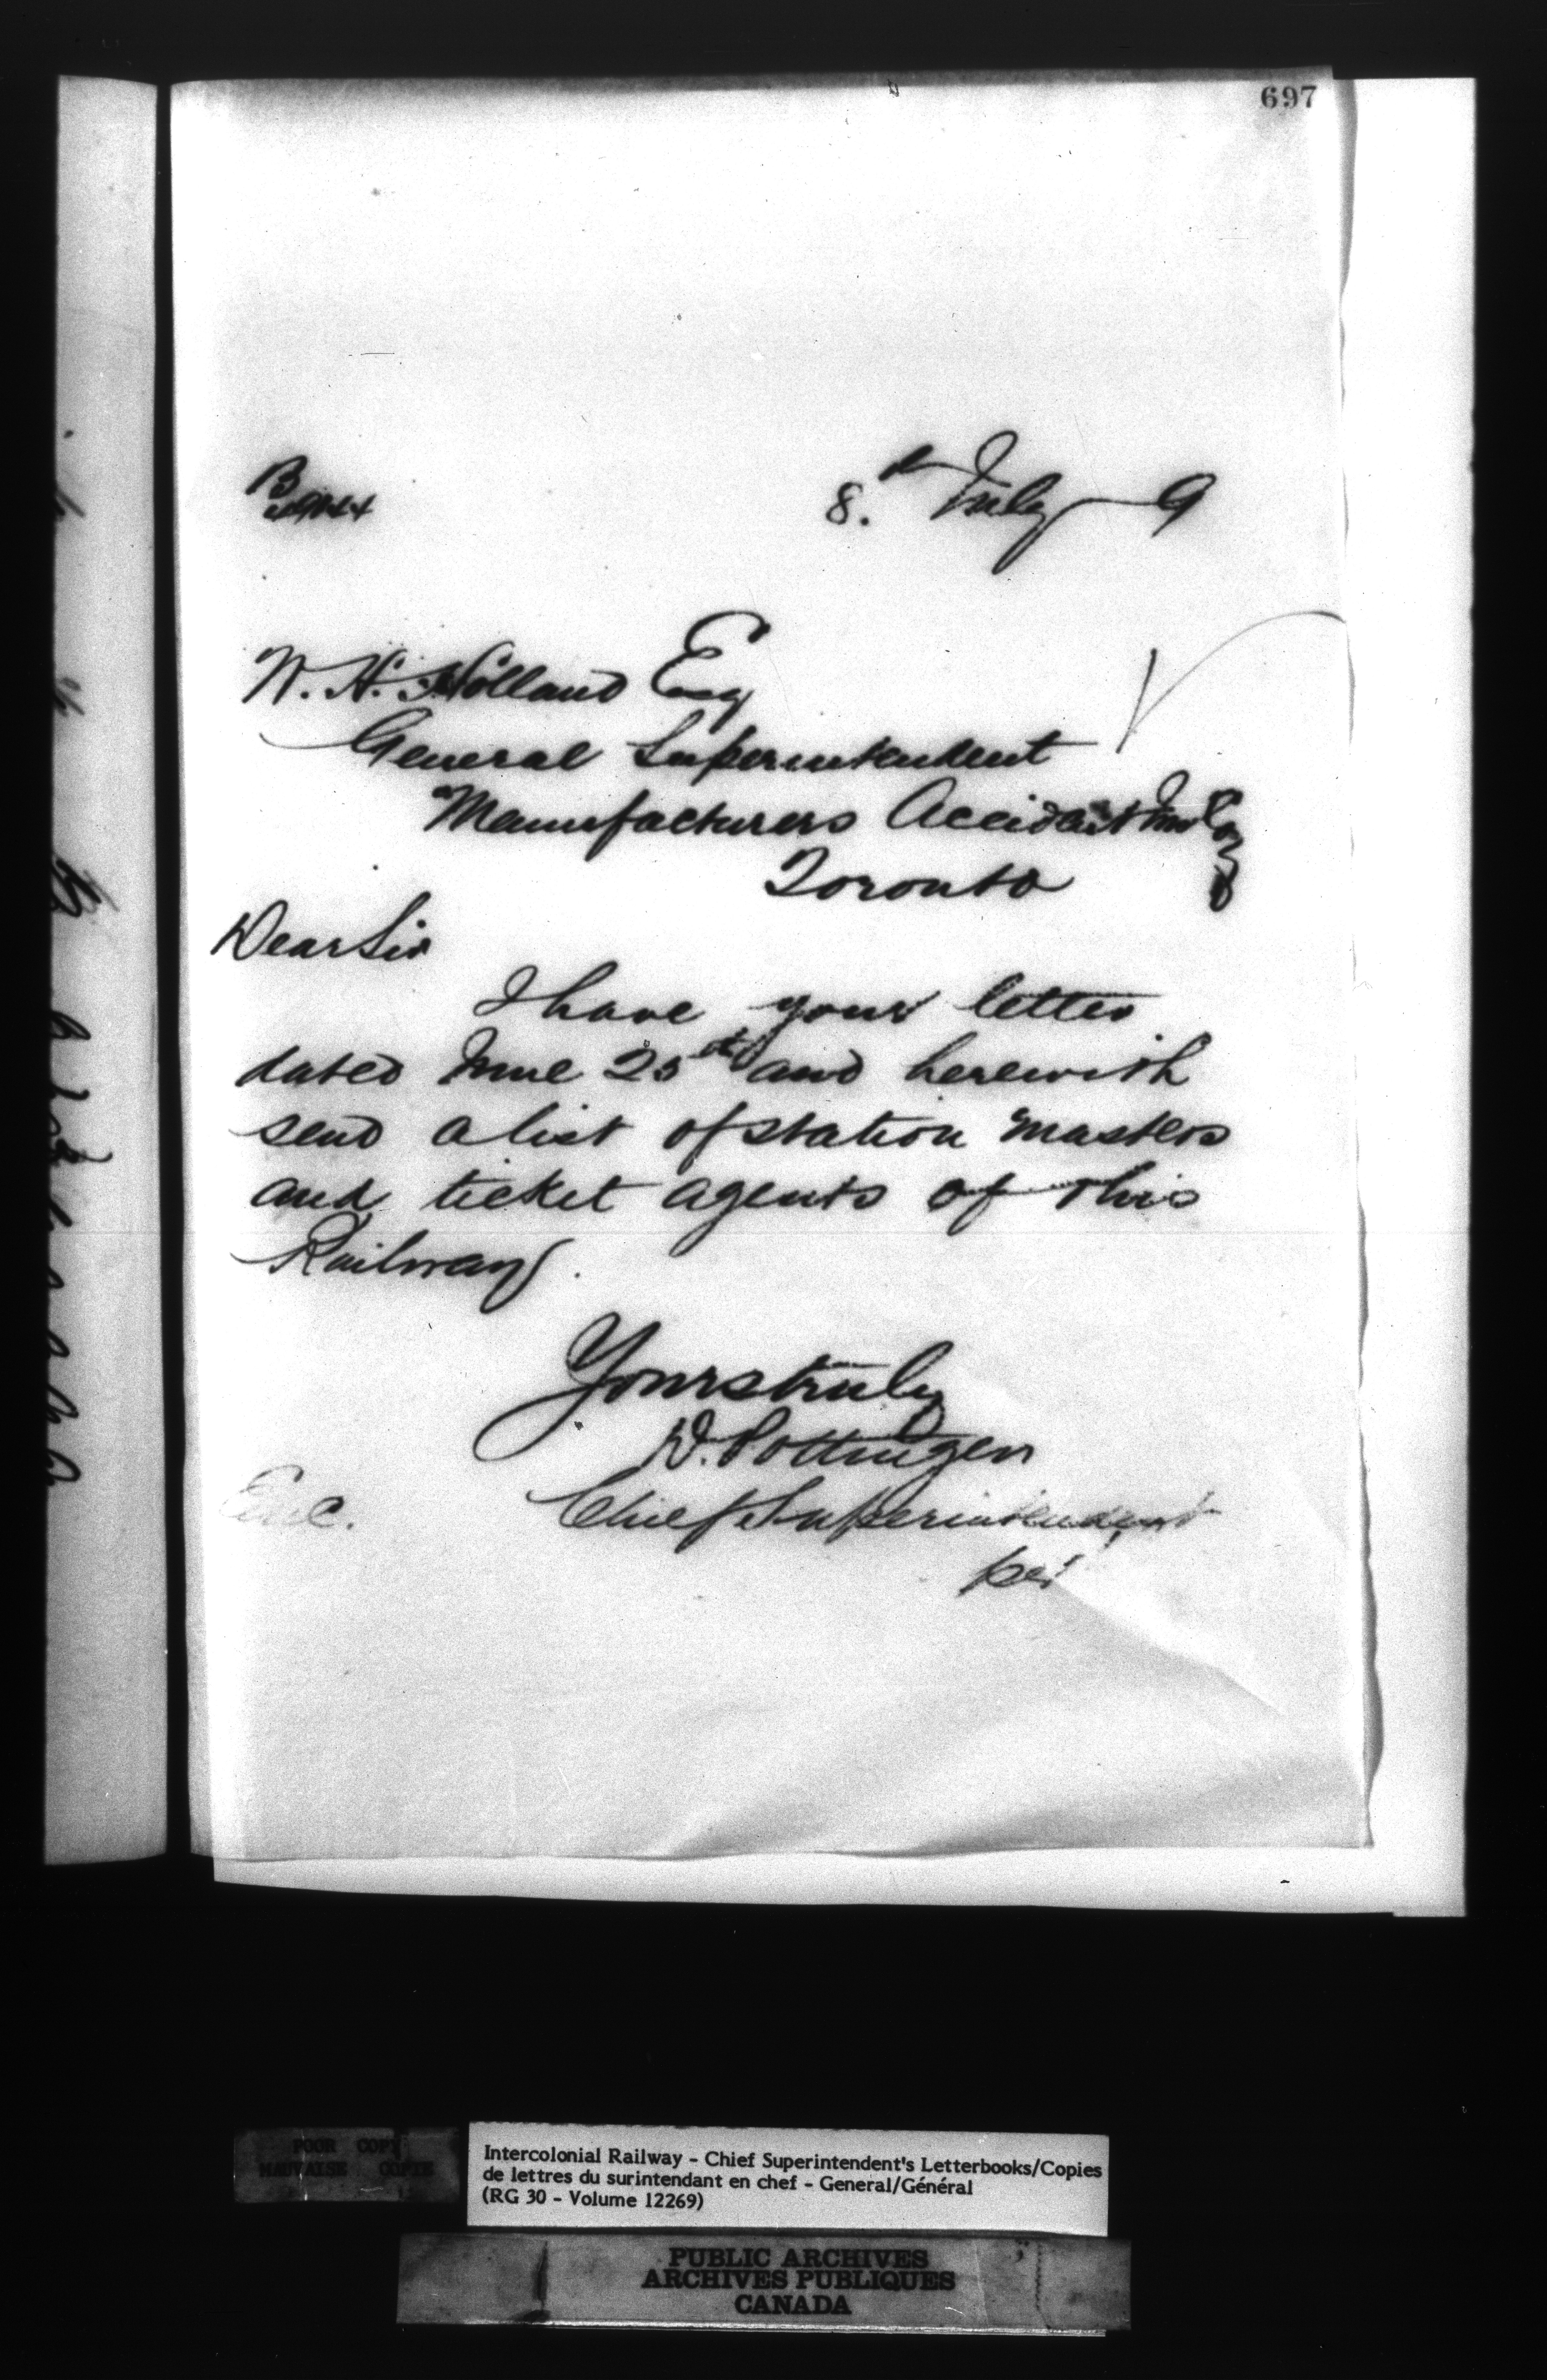 697
8th July 9
W. H. Holland Esq
General Superintendent
Manufacturers Accident Ins Coy
Toronto
Dear Sir
I have your letter
dated June 25th and herewith
send a list of station masters
and ticket agents of this
Railway.
Yours truly
D. Pottinger
Chief Superintendent
per
Enc.
POOR COPY
MAUVAISE COPIE
Intercolonial Railway - Chief Superintendent's Letterbooks/Copies
de lettres du surintendant en chef - General/Général
(RG 30 - Volume 12269)
PUBLIC ARCHIVES
ARCHIVES PUBLIQUES
CANADA